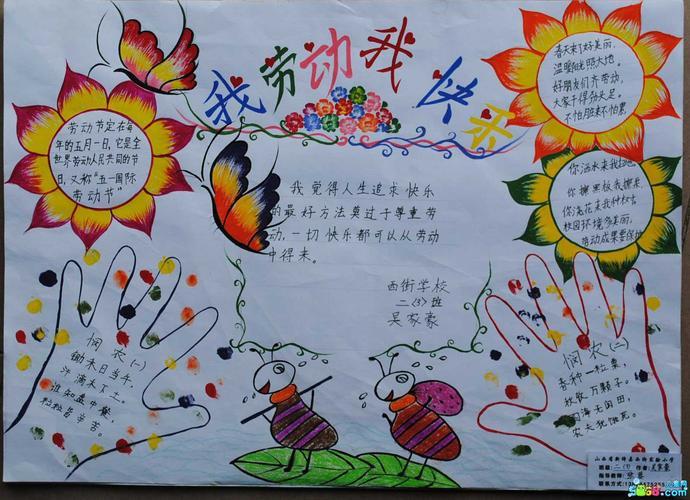 我劳动我快乐
劳动节定在每
年的五月一日，它是全
世界劳动人民共同的节
日，又称“五一国际
劳动节”
春天来了好美丽，
温暖阳光照大地。
好朋友们齐劳动，
大家干得劲头足。
不怕脏来不怕累。
我觉得人生追求快乐
的最好方法莫过于尊重劳
动，一切快乐都可以从劳动
中得来。
西街学校
二（3）班
吴家豪
你洒水来我扫地，
你擦黑板我擦桌，
你浇花来我种树
校园环境多美丽，
劳动成果要保护
悯农（一）
锄禾日当午，
汗滴禾下土。
谁知盘中餐，
粒粒皆辛苦。
悯农（二）
春种一粒粟，
秋收万颗子。
四海无闲田，
农夫犹饿死。
班级：二（3）作者：吴家豪
指导教师：
联系方式：